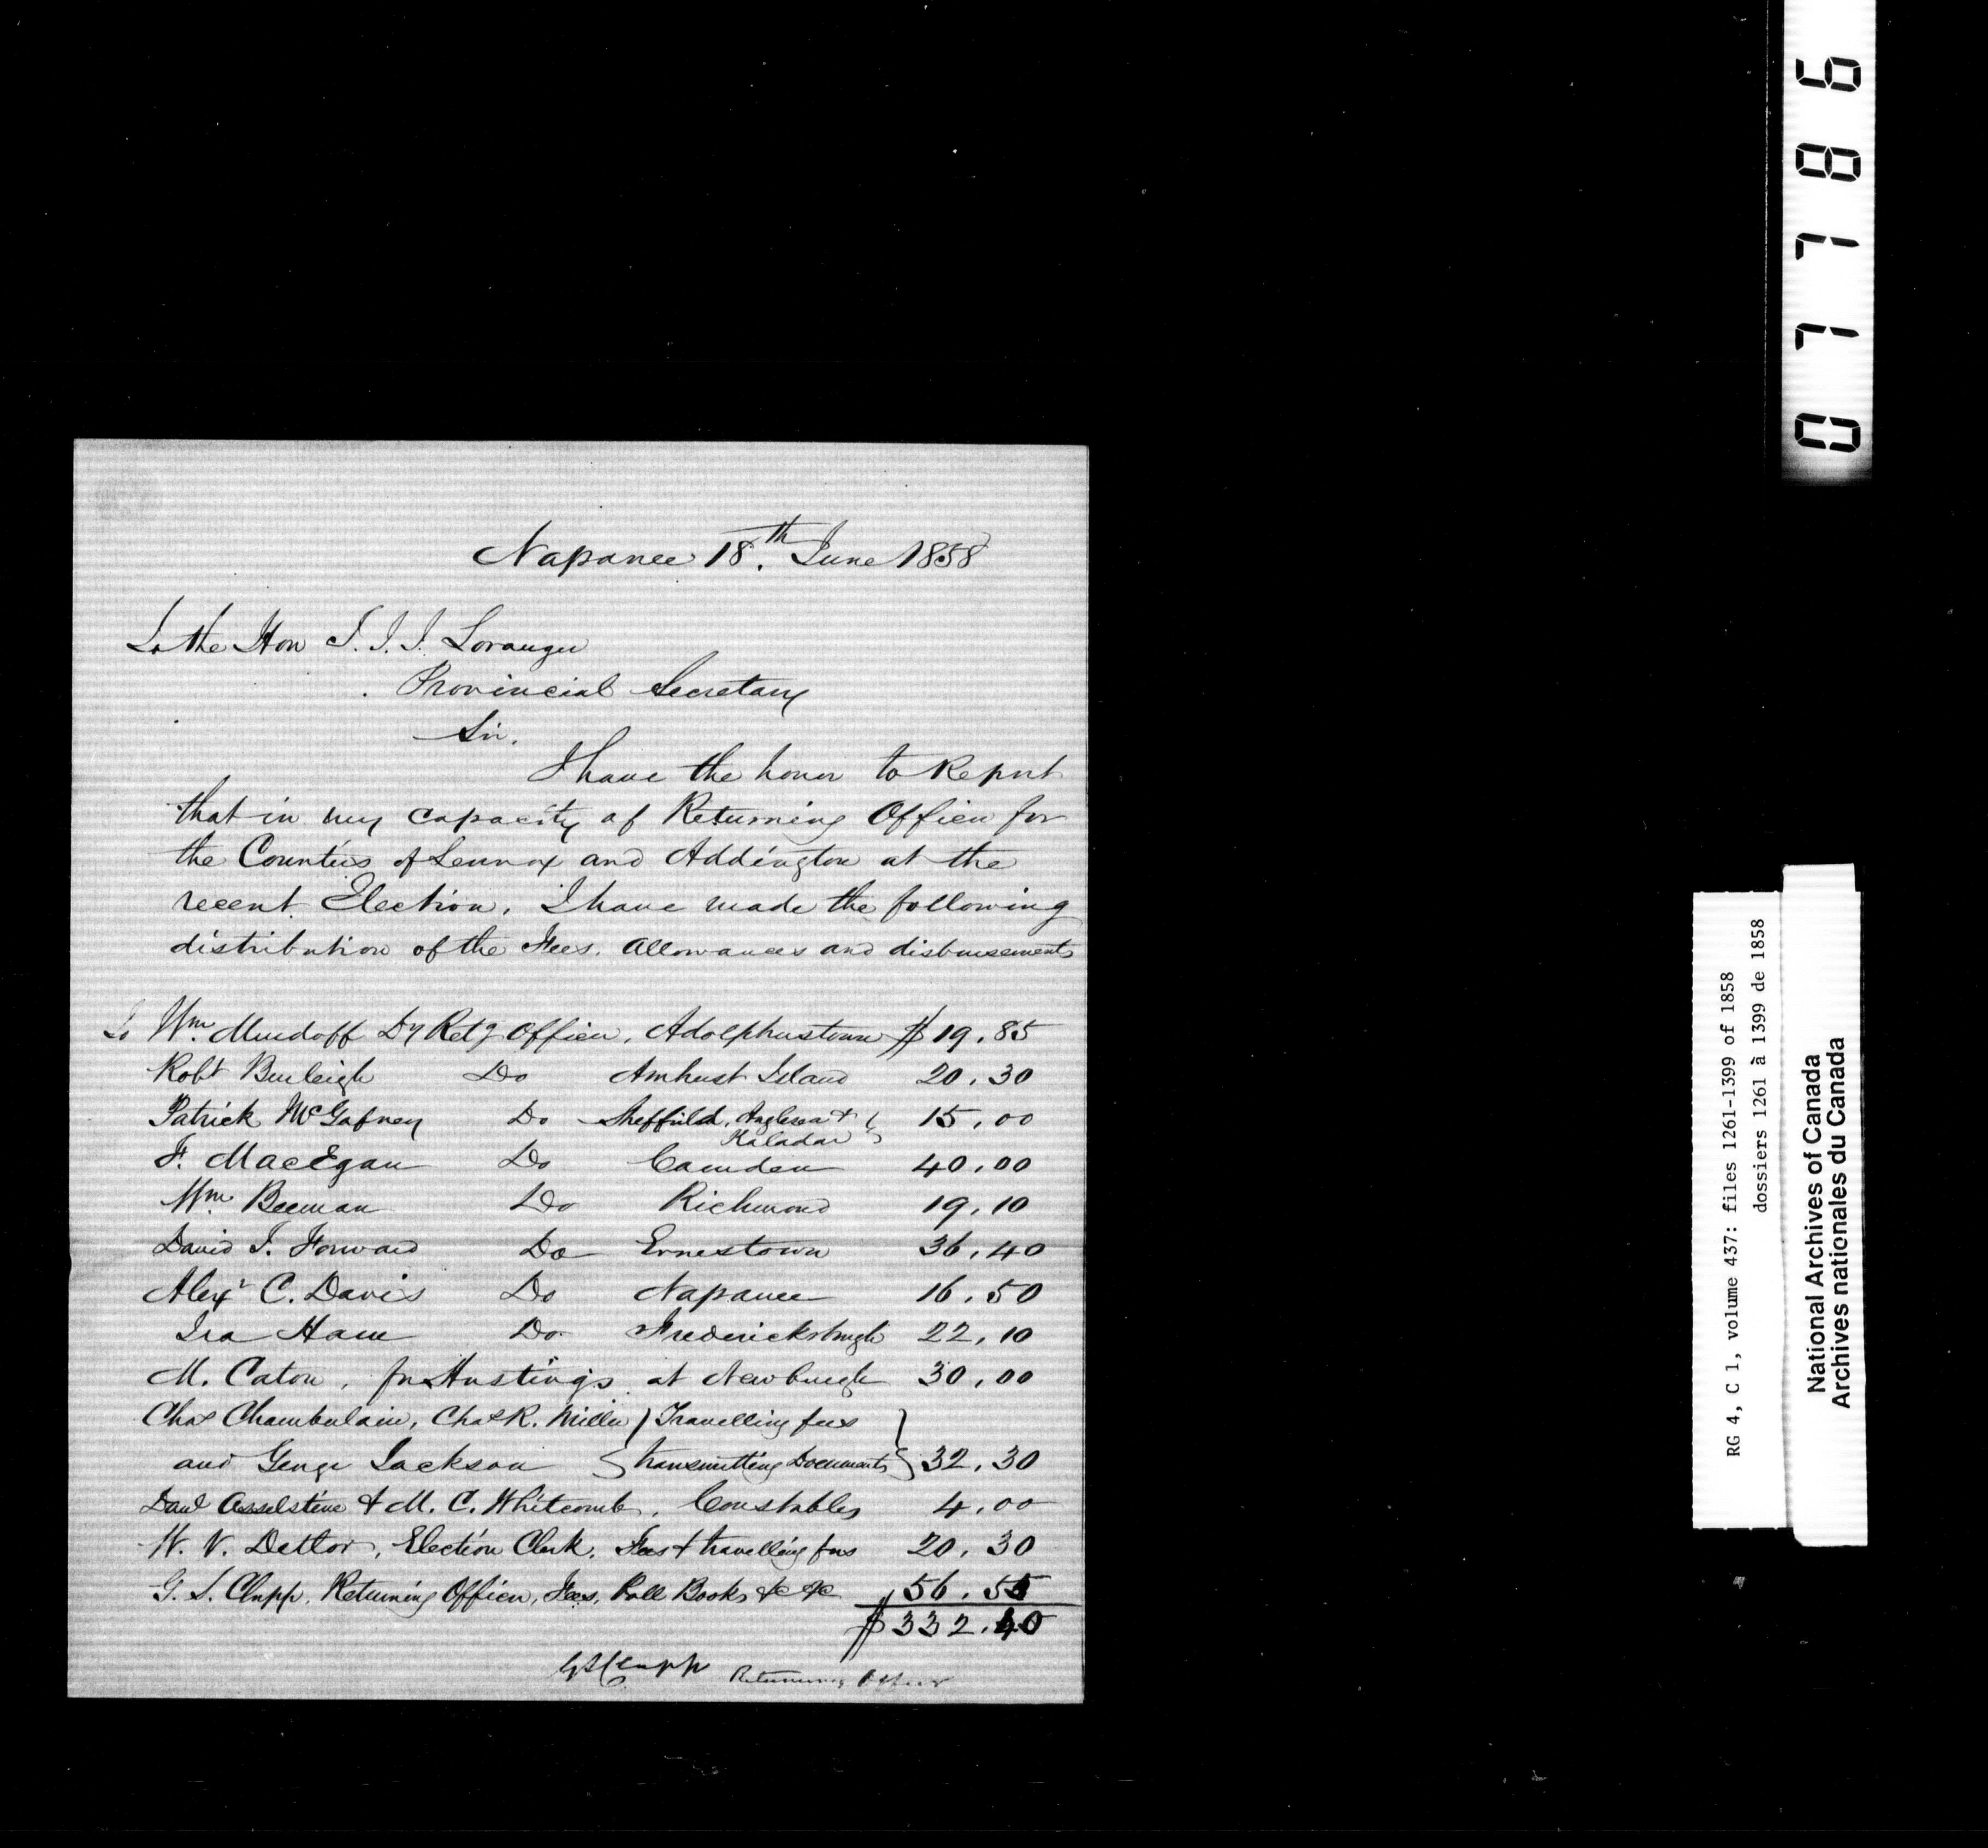 Napanee 18.th June 1858
To the Hon T. J. J. Loranger
Provincial Secretary
Sir,
I have the honor to Report
that in my capacity of Returning Officer for
the Counties of Lennox and Addington at the
recent Election, I have made the following
distribution of the Fees, Allowances and disbursements
To Wm. Murdoff Dy Retg Officer, Adolphustown $19.85
Robt Burleigh Do Amherst Island 20.30
Patrick McGafney Do Sheffield, Anglesea &
Kaladar } 15.00
F. MacEgan Do Camden 40.00
Wm. Beeman Do Richmond 19.10
David J. Forward Do Ernestown 36.40
Alexr C. Davis Do Napanee 16.50
Ira Ham Do. Fredericksburgh 22.10
M. Caton, for Hustings at Newburgh 30.00
Chas Chamberlain, Chas R. Miller } Travelling fees
and George Jackson } transmitting Documents } 32.30
Danl Asselstine & M. C. Whitcomb, Constables 4.00
W. V. Detlor, Election Clerk, Fees & travelling fees 20.30
G. S. Clapp, Returning Officer, Fees, Poll Books &c &c 56.55
$332.40
G S Clapp Returning Officer
07786
RG 4, C 1, volume 437: files 1261-1399 of 1858
dossiers 1261 à 1399 de 1858
National Archives of Canada
Archives nationales du Canada